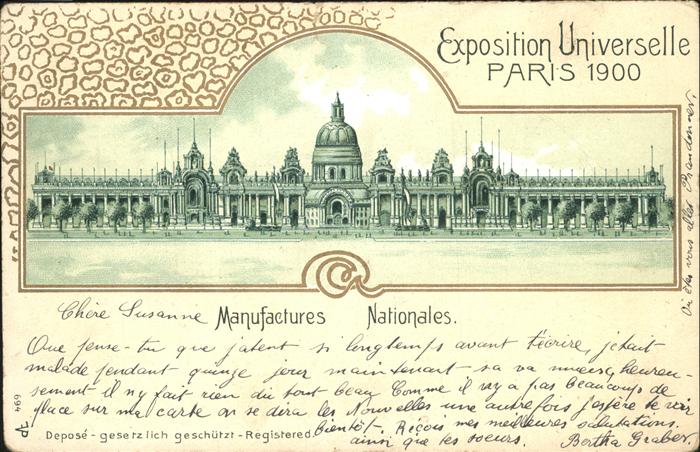 Exposition Universelle
PARIS 1900
Chère Susanne
Manufactures Nationales.
Que pense-tu que jatent si longtemps avant t'écrire, jétait
malade pendant quinze jour maintenant sa va mieux, heureu-
sement il ny fait rien du tout beau Comme il ny a pas beaucoup de
place sur ma carte on se dira les Nouvelles une autre fois j'espère te voir
bientôt. Reçois mes meilleures salutations.
ainsi que tes soeurs. Bertha Graber.
Deposé - gesetzlich geschützt - Registered.
694
Où êtes vous allés